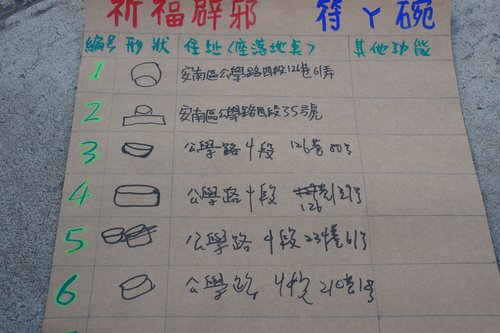 祈福辟邪 符ㄚ碗
編号 形狀 住址(座落地点) 其他功能
1 安南區公學路四段126巷61弄
2 安南區公學路四段35号號
3 公學路4段 126巷80号
4 公學路4段 129号
126
5 公學路4段234巷61号
6 公學路 4段 210巷1号